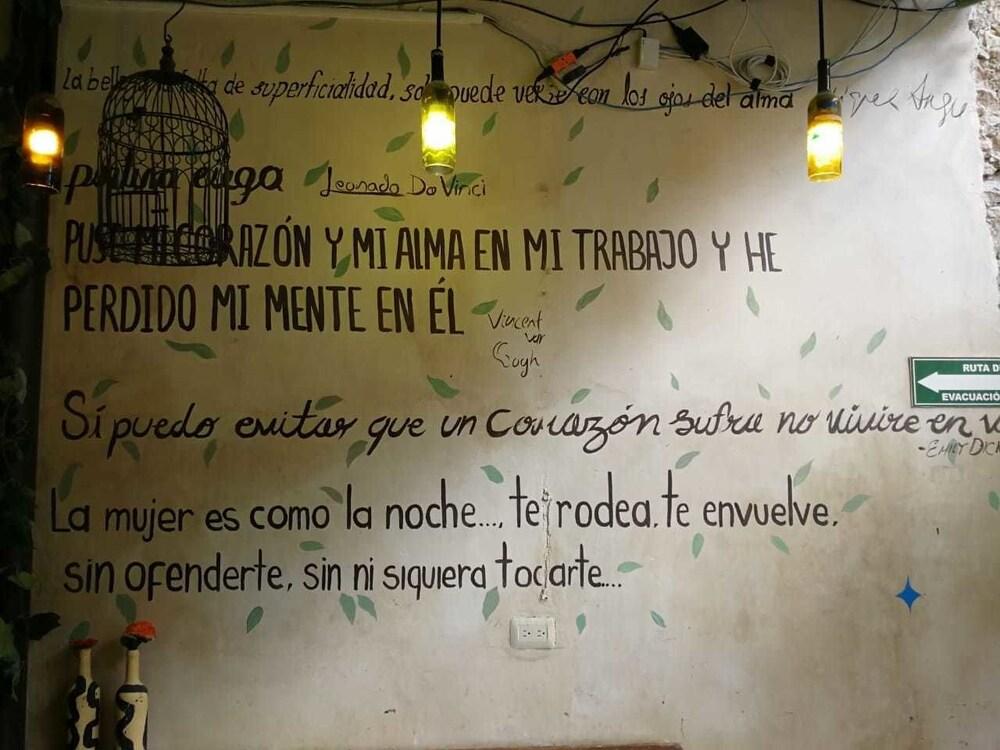 La de superficialidad, puede verse con los ojos del alma
Leonado Da Vinci
MI CORAZÓN Y MI ALMA EN MI TRABAJO Y HE
PERDIDO MI MENTE EN ÉL
Vincent
van
Gogh
RUTA D
EVACUACIÓ
Sí puedo evitar que un Corazón sufra no vivire en
-EMILY DICK
La mujer es como la noche..., te rodea, te envuelve,
sin ofenderte, sin ni siquiera tocarte....